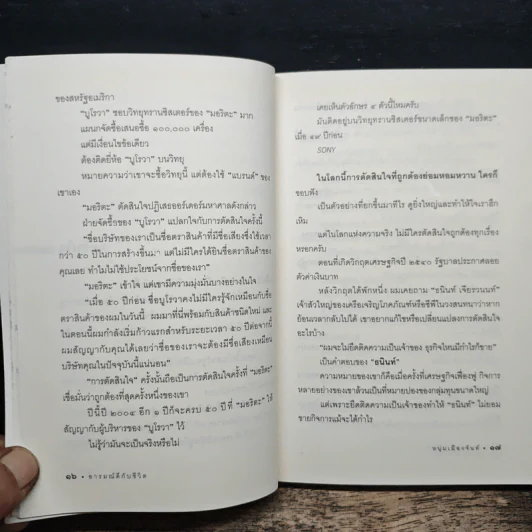 ของสหรัฐอเมริกา
"บูโรวา" ชอบวิทยุทรานซิสเตอร์ของ "มอริตะ" มาก
แผนกจัดซื้อเสนอซื้อ ๑๐๐,๐๐๐ เครื่อง
แต่มีเงื่อนไขข้อเดียว
ต้องติดยี่ห้อ "บูโรวา" บนวิทยุ
หมายความว่าเขาจะซื้อวิทยุนี้ แต่ต้องใช้ "แบรนด์" ของ
เขาเอง
"มอริตะ" ตัดสินใจปฏิเสธออร์เดอร์มหาศาลดังกล่าว
ฝ่ายจัดซื้อของ "บูโรวา" แปลกใจกับการตัดสินใจครั้งนี้
"ชื่อบริษัทของเราเป็นชื่อตราสินค้าที่มีชื่อเสียงซึ่งใช้เวลา
กว่า ๕๐ ปีในการสร้างขึ้นมา แต่ไม่มีใครได้ยินชื่อตราสินค้าของ
คุณเลย ทำไมไม่ใช้ประโยชน์จากชื่อของเรา"
"มอริตะ" เข้าใจ แต่เขามีความมุ่งมั่นบางอย่างในใจ
"เมื่อ ๕๐ ปีก่อน ชื่อบูโรวาคงไม่มีใครรู้จักเหมือนกับชื่อ
ตราสินค้าของผมในวันนี้ ผมมาที่นี่พร้อมกับสินค้าชนิดใหม่ และ
ในตอนนี้ผมกำลังเริ่มก้าวแรกสำหรับระยะเวลา ๕๐ ปีต่อจากนี้
ผมสัญญากับคุณได้เลยว่าชื่อของเราจะต้องมีชื่อเสียงเหมือน
บริษัทคุณในปัจจุบันนี้แน่นอน"
"การตัดสินใจ" ครั้งนั้นถือเป็นการตัดสินใจครั้งที่ "มอริตะ"
เชื่อมั่นว่าถูกต้องที่สุดครั้งหนึ่งของเขา
ปีนี้ปี 2004 อีก ๑ ปีก็จะครบ ๕๐ ปี ที่ "มอริตะ" ให้
สัญญากับผู้บริหารของ "บูโรวา" ไว้
ไม่รู้ว่ามันจะเป็นจริงหรือไม่
๑๖ • อารมณ์ดีกับชีวิต
เคยเห็นตัวอักษร ๔ ตัวนี้ไหมครับ
มันติดอยู่บนวิทยุทรานซิสเตอร์ขนาดเล็กของ "มอริตะ"
เมื่อ ๔๙ ปีก่อน
SONY
ในโลกนี้การตัดสินใจที่ถูกต้องย่อมหอมหวาน ใครก็
ชอบฟัง
เป็นตัวอย่างที่ยกขึ้นมาทีไร ดูยิ่งใหญ่และทำให้ใจเราฮึก
เหิม
แต่ในโลกแห่งความจริง ไม่มีใครตัดสินใจถูกต้องทุกเรื่อง
หรอกครับ
ตอนที่เกิดวิกฤตเศรษฐกิจปี ๒๕๔๐ รัฐบาลประกาศลอย
ตัวค่าเงินบาท
หลังวิกฤตได้พักหนึ่ง ผมเคยถาม "ธนินท์ เจียรวนนท์"
เจ้าสัวใหญ่ของเครือเจริญโภคภัณฑ์หรือซีพีในวงสนทนาว่าหาก
ย้อนเวลากลับไปได้ เขาอยากแก้ไขหรือเปลี่ยนแปลงการตัดสินใจ
อะไรบ้าง
"ผมจะไม่ยึดติดความเป็นเจ้าของ ธุรกิจไหนมีกำไรก็ขาย"
เป็นคำตอบของ "ธนินท์"
ความหมายของเขาก็คือเมื่อครั้งที่เศรษฐกิจเฟื่องฟู กิจการ
หลายอย่างของเขาล้วนเป็นที่หมายปองของกลุ่มทุนขนาดใหญ่
แต่เพราะยึดติดความเป็นเจ้าของทำให้ "ธนินท์" ไม่ยอม
ขายกิจการแม้จะได้กำไร
หนุ่มเมืองจันท์ • ๑๗